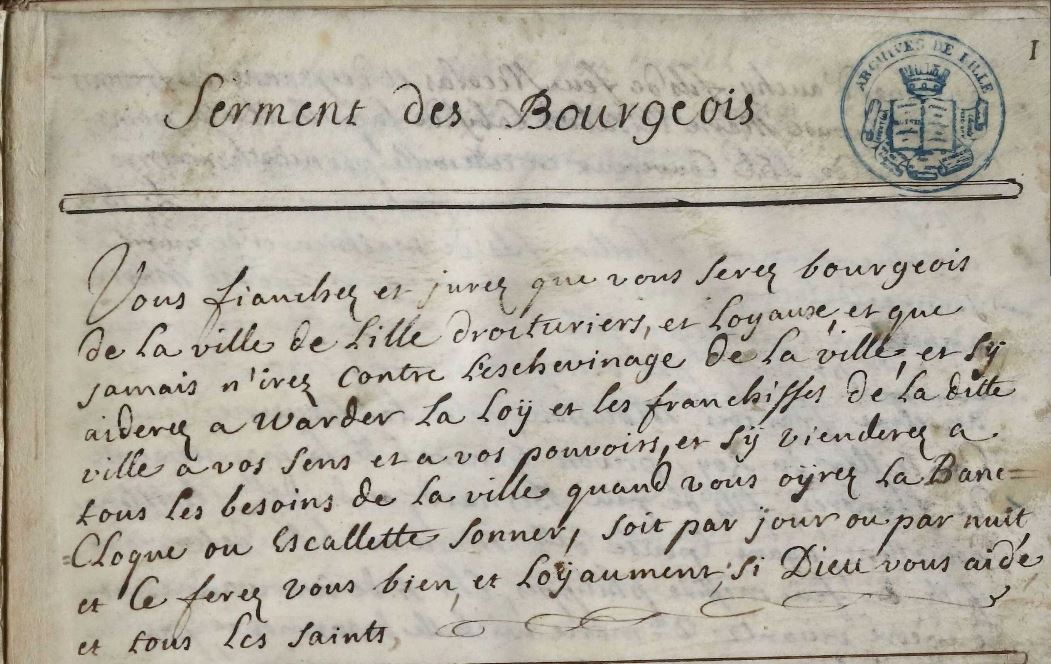 1
ARCHIVES DE LILLE
Serment des Bourgeois
Vous fianchez et jurez que vous serez bourgeois
de la ville de Lille droituriers, et Loÿaux, et que
jamais n'irez contre L'eschevinage de la ville, et sÿ
aiderez a Warder La Loÿ et les franchisses de la ditte
ville a vos sens et a vos pouvoirs, et sÿ vienderez a
tous les besoins de la ville quand vous oÿrez La Banc=
=Cloque ou Escallette sonner, soit par jour ou par nuit
et Ce ferez vous bien, et Loÿaument, si Dieu vous aide
et tous les saints,